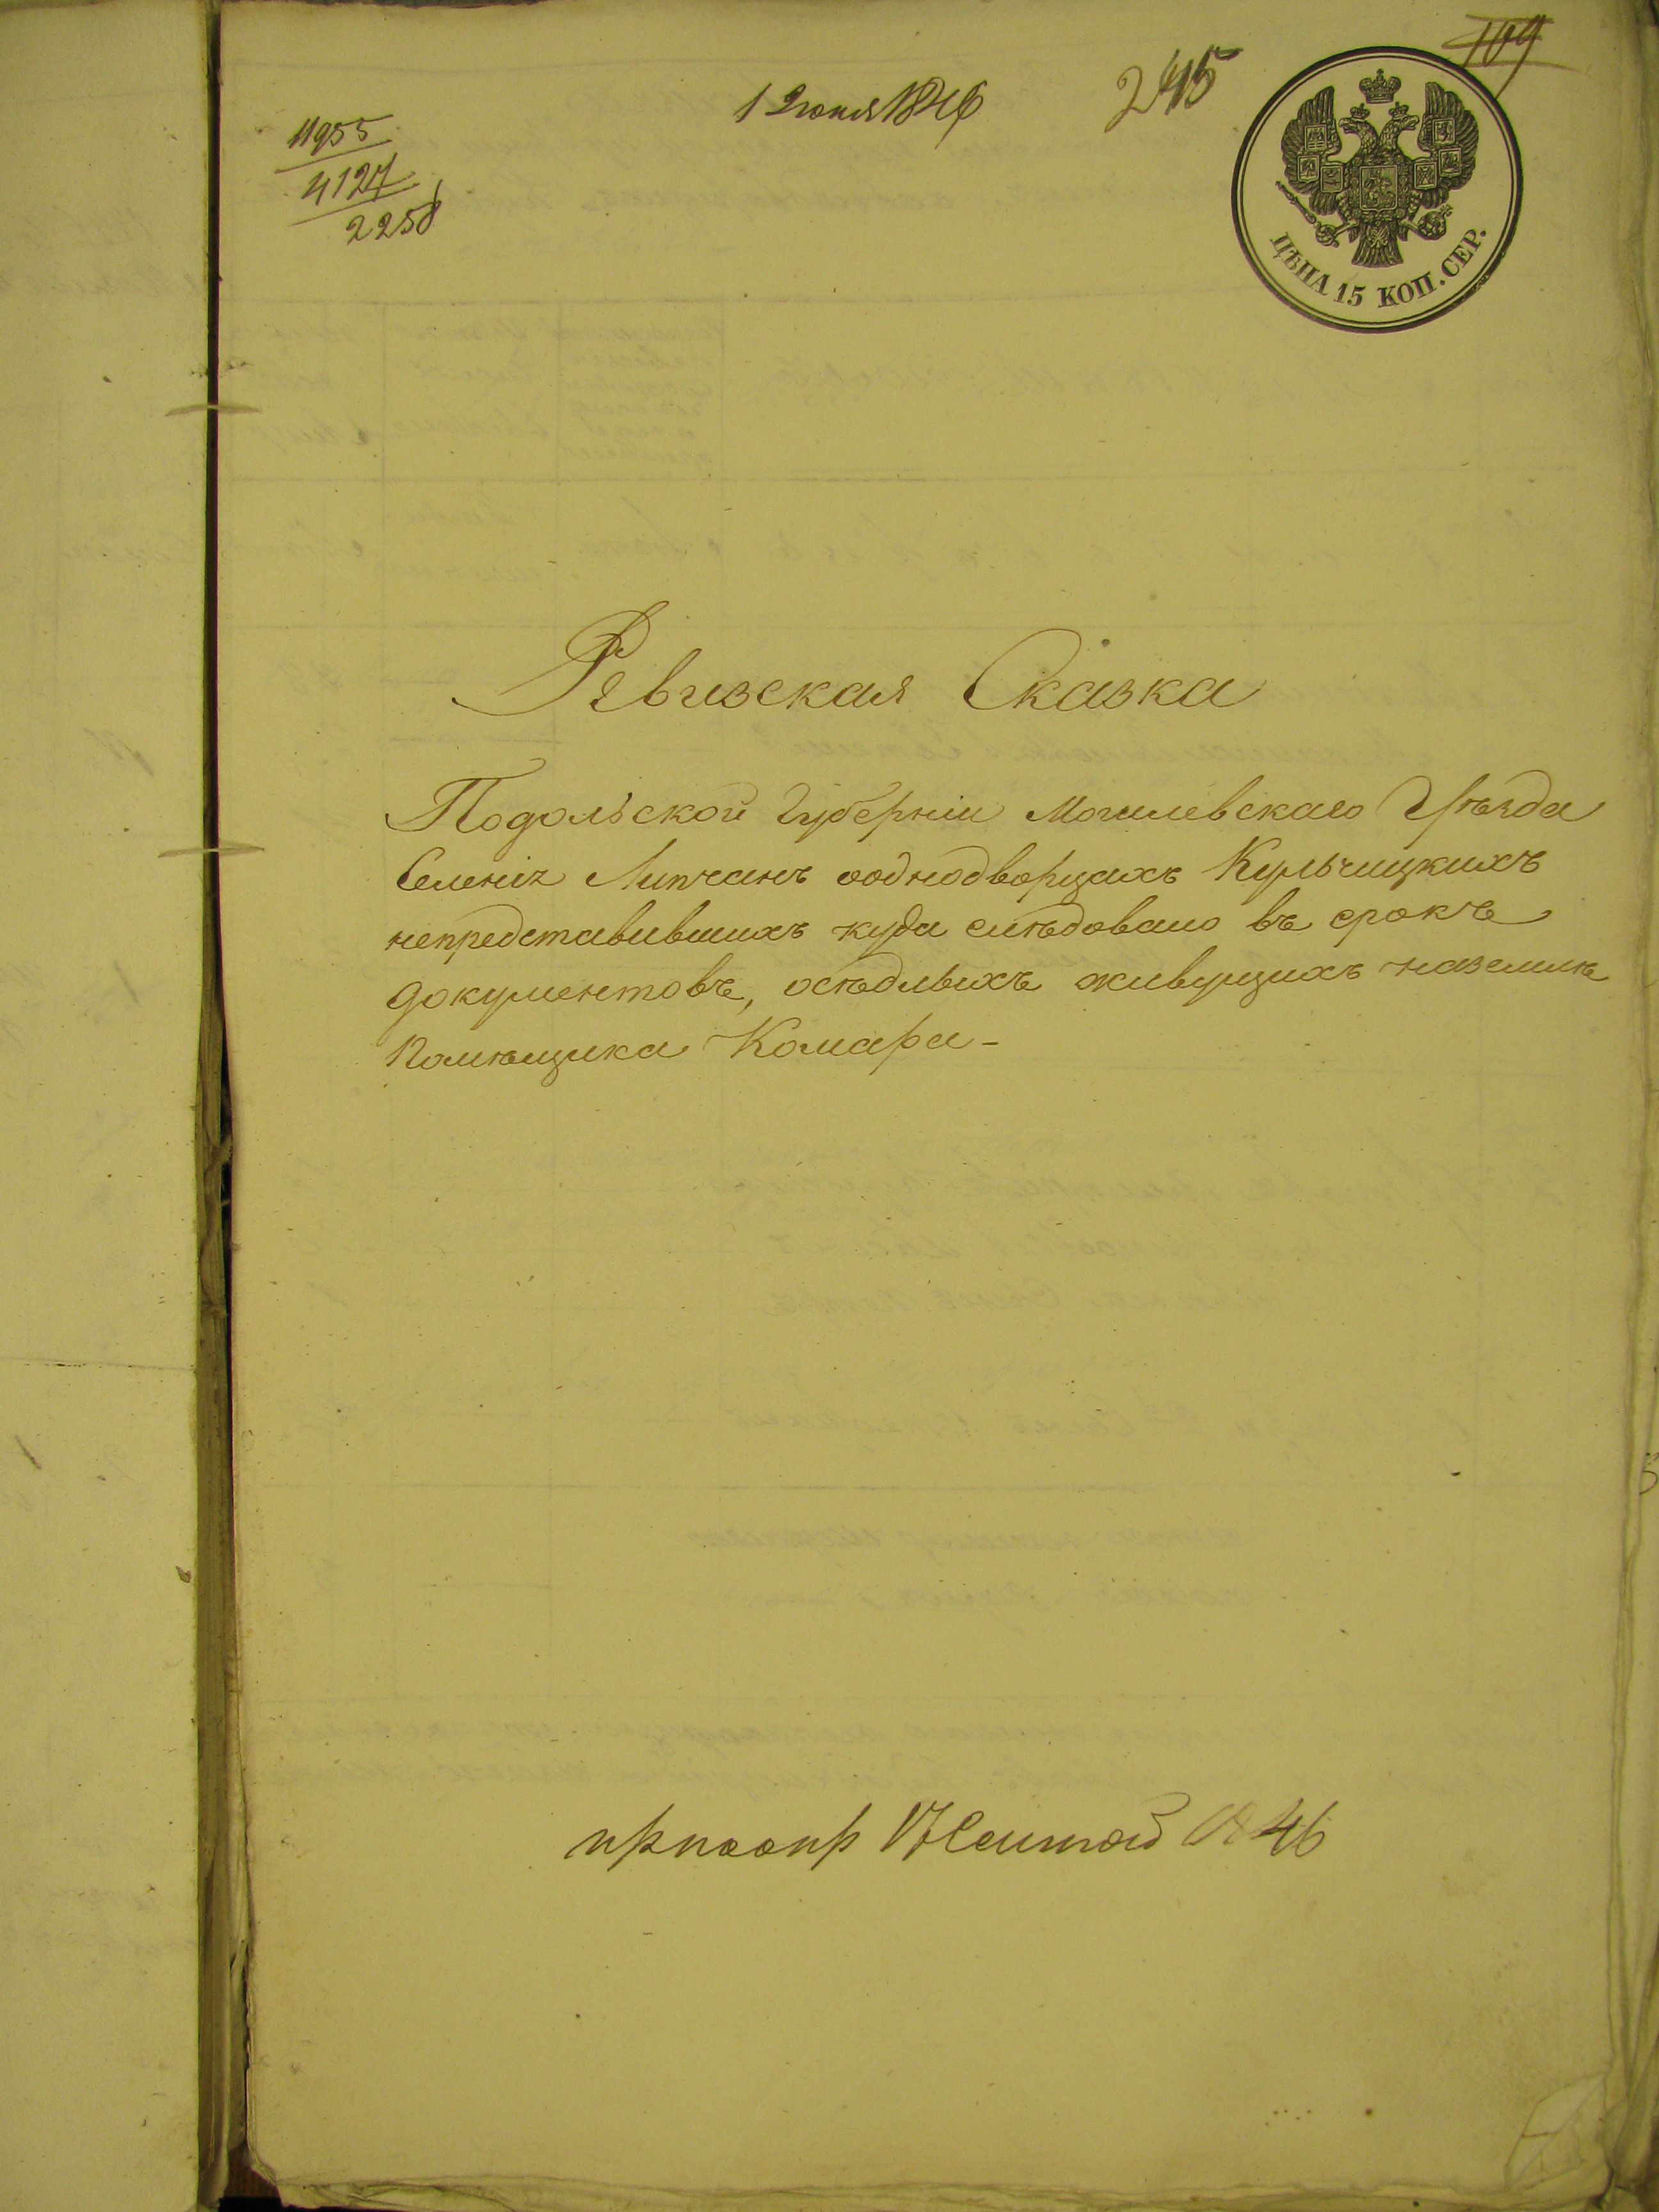 109
245
1 Июня 1846
11955
4127
2258
ЦѢНА 15 КОП. СЕР.
Ревизская Сказка
Подольской Губерніи Могилевскаго Уѣзда
Селенія Липчанъ ооднодворцахъ Кульчицкихъ
непредставившихъ куда слѣдовало въ срокъ
документовъ, осѣдлыхъ живущихъ наземлѣ
Помѣщика Комара -
1846